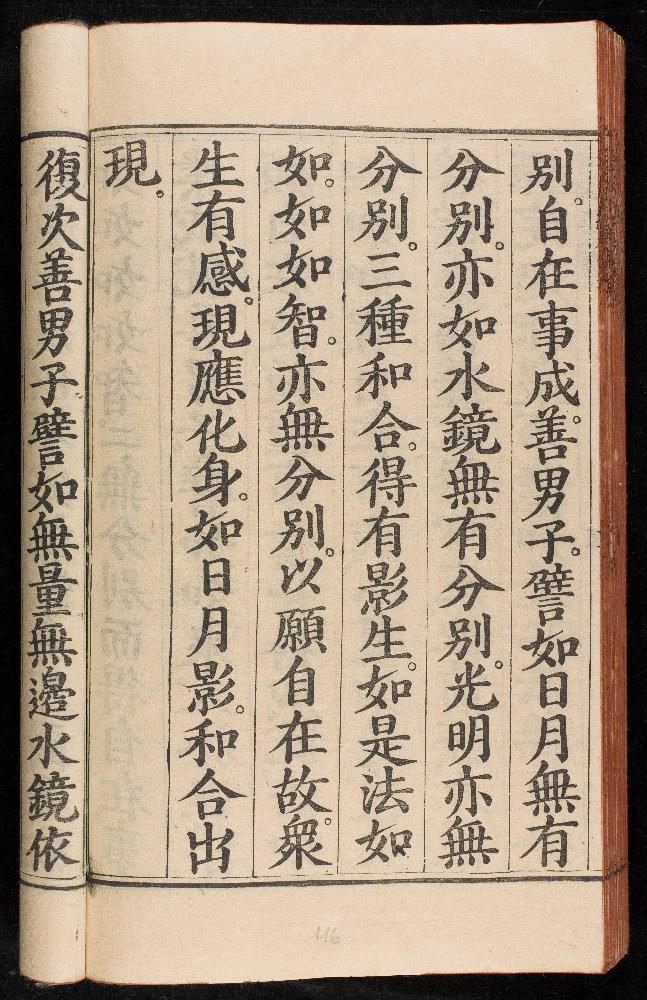 別。自在事成。善男子。譬如日月無有
分別。亦如水鏡無有分別。光明亦無
分別。三種和合。得有影生。如是法如
如。如如智。亦無分別。以願自在故。衆
生有感。現應化身。如日月影。和合出
現。
復次善男子譬如無量無邊水鏡依
116